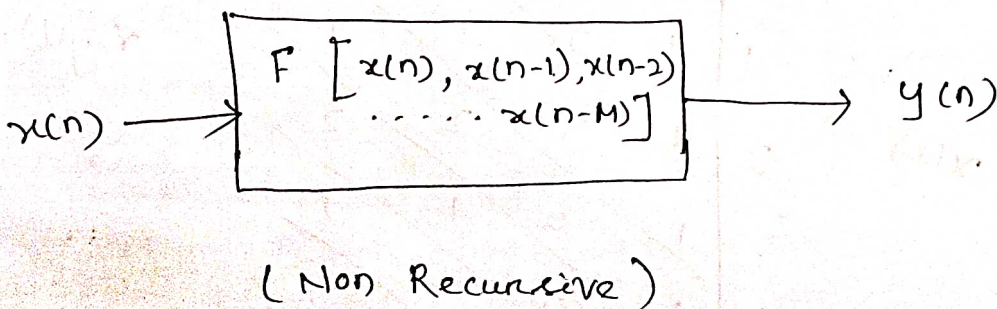 F [x(n), x(n-1), x(n-2)
...... x(n-M)]
x(n)
y(n)
(Non Recursive)